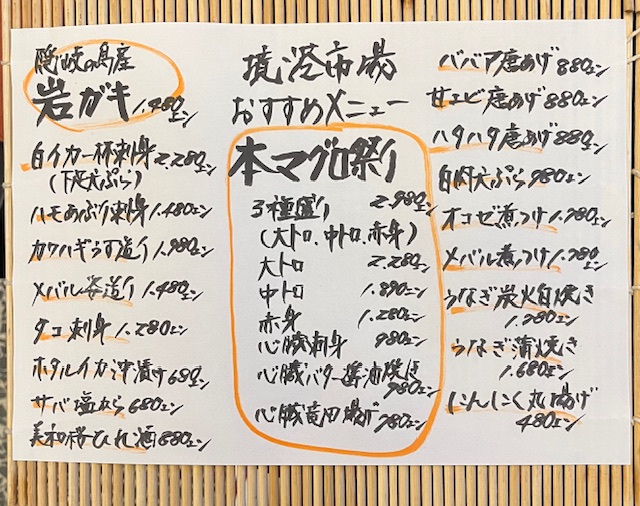 隠岐の島産
岩ガキ 1.480エン
白イカ一杯刺身 2.280エン
(下足天ぷら)
ハモあぶり刺身 1.480エン
カワハギうす造り 1.980エン
メバル姿造り 1.480エン
タコ刺身 1.280エン
ホタルイカ沖漬け 680エン
サバ塩から 680エン
美和桜ひれ酒 880エン
境港市場
おすすめメニュー
本マグロ祭り
3種盛り 2.980エン
(大トロ、中トロ、赤身)
大トロ 2.280エン
中トロ 1.890エン
赤身 1.280エン
心臓刺身 980エン
心臓バター醤油焼き
980エン
心臓竜田揚げ 980エン
ババア唐あげ 880エン
甘エビ唐あげ 880エン
ハタハタ唐あげ 880エン
白肉天ぷら 980エン
オコゼ煮つけ 1.980エン
メバル煮つけ 1.980エン
うなぎ炭火白焼き
1.980エン
うなぎ蒲焼き
1.680エン
にんにく丸揚げ
480エン